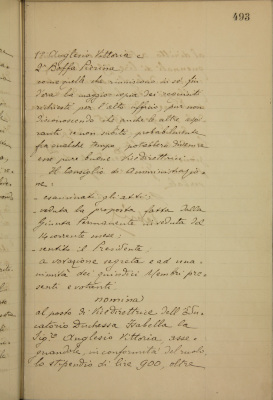 493
1ª Anglesio Vittoria e
2ª Boffa Pierina
come quelle che riuniscono in sé, fin
d'ora la maggior copia dei requisiti
richiesti per l'alto ufficio; pur non
disconoscendo che anche le altre aspi
ranti, se non subito, probabilmente
fra qualche tempo, potrebbero divenire
esse pure buone Vicedirettrici.
Il Consiglio di Amministrazio
ne:
- esaminati gli atti;
- veduta la proposta fatta dalla
Giunta Permanente in seduta del
14 corrente mese;
- sentito il Presidente;
a votazione segreta e ad una-
nimità dei quindici Membri pre
senti e votanti:
nomina
al posto di Vicedirettrice dell'Edu
catorio Duchessa Isabella la
Sig.ª Anglesio Vittoria, asse-
gnandole, in conformità del ruolo
lo stipendio di lire 900, oltre